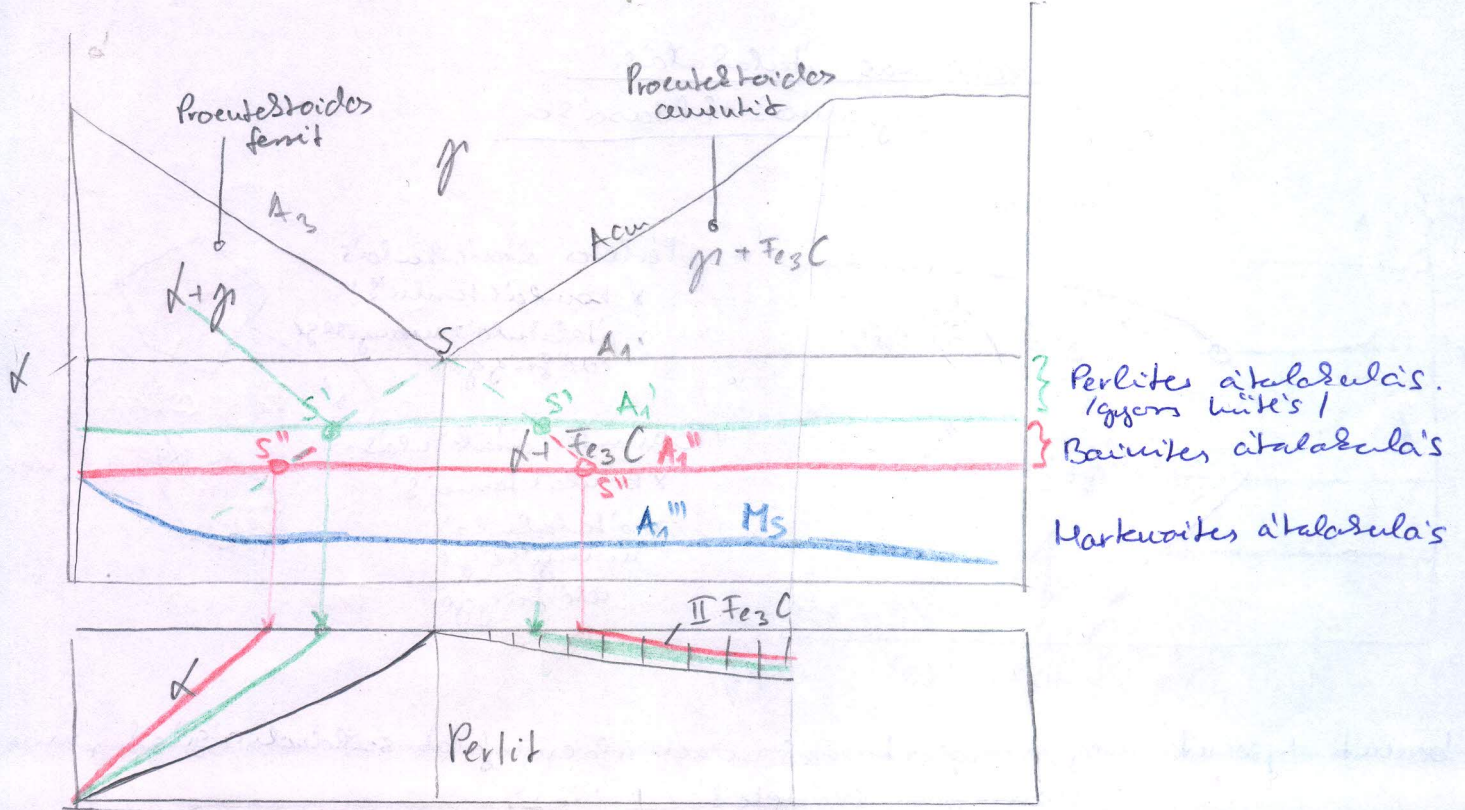 Proeutektoidos
ferrit
Proeutektoidos
cementit
γ
A3
Acm
γ + Fe3C
α+γ
S
A1
α
S'
S'
A1'
Perlites átalakulás.
/gyors hűtés/
S"
α+ Fe3C
A1"
S"
Bainites átalakulás
A1'''
Ms
Martensites átalakulás
II Fe3C
α
Perlit